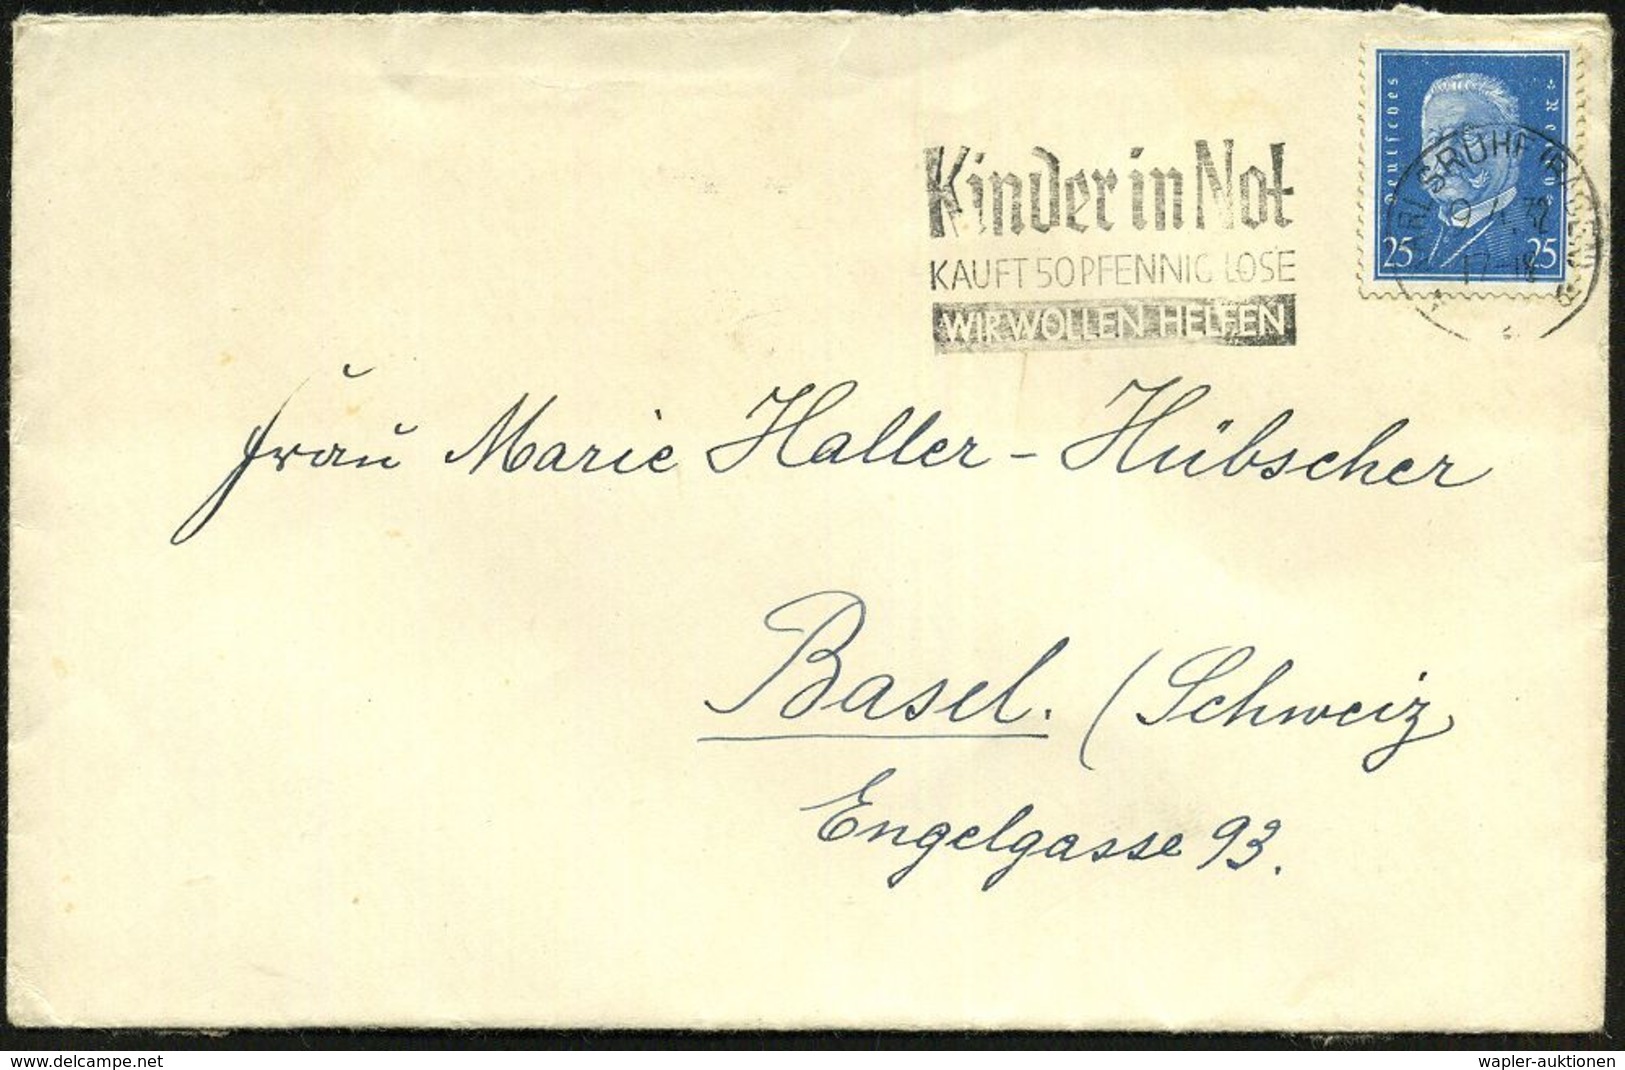 Kinder in Not
KAUFT 50 PFENNIG LOSE
WIR WOLLEN HELFEN
Deutsches
25 25
KARLSRUHE (BADEN)
9.4.32
17-18
Frau Marie Haller-Hübscher
Basel. (Schweiz
Engelgasse 93.
www.delcampe.net
wapler-auktionen